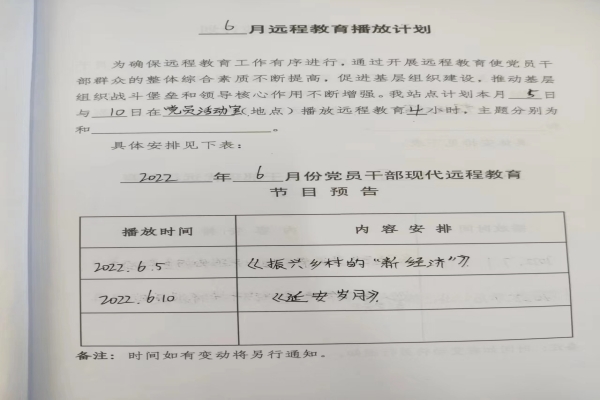 6月远程教育播放计划
为确保远程教育工作有序进行，通过开展远程教育使党员干
部群众的整体综合素质不断提高，促进基层组织建设，推动基层
组织战斗堡垒和领导核心作用不断增强。我站点计划本月5日
与10日在党员活动室(地点）播放远程教育4小时，主题分别为
和 。
具体安排见下表：
2022年6月份党员干部现代远程教育
节目预告
播放时间 内容安排
2022.6.5 《振兴乡村的“新经济”》
2022.6.10 《延安岁月》
备注：时间如有变动将另行通知。